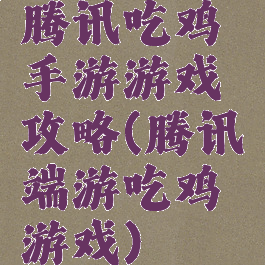 腾讯吃鸡
手游游戏
攻略(腾讯
端游吃鸡
游戏)